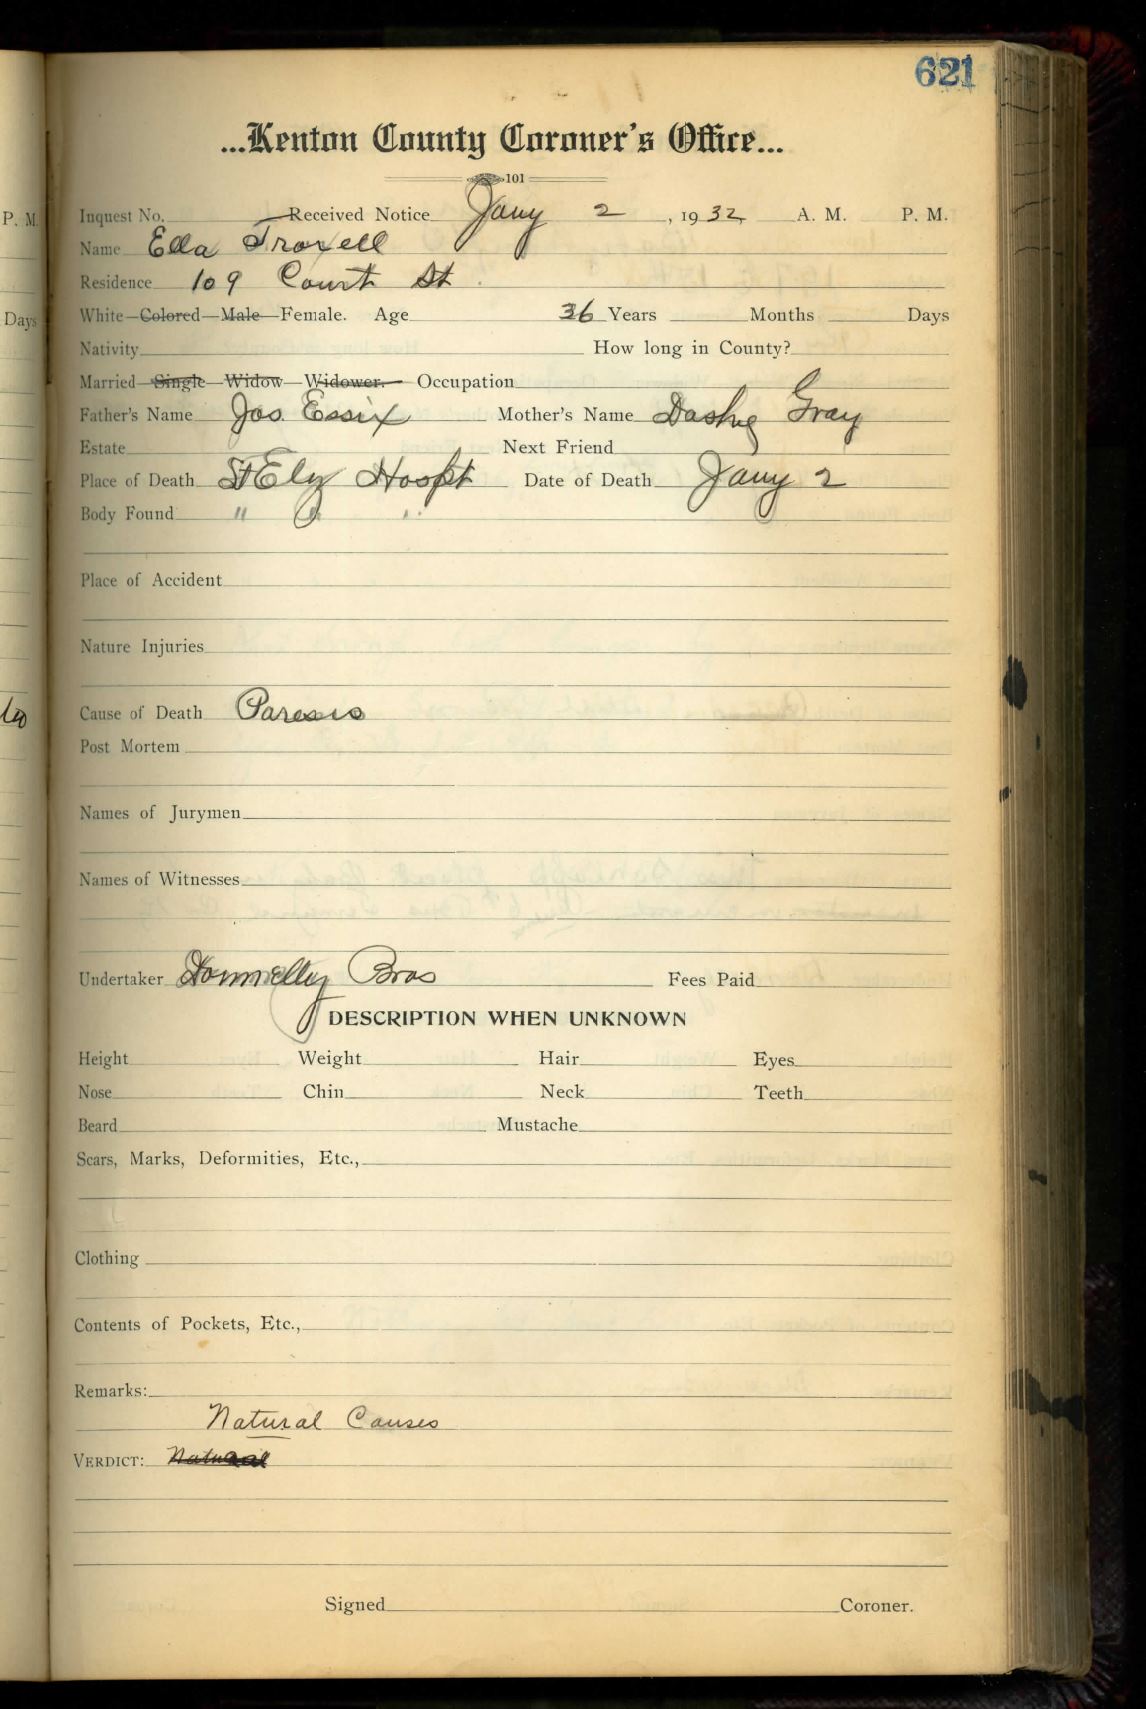 621
...Kenton County Coroner's Office...
101
P. M. Inquest No. Received Notice Jany 2, 1932 A. M. P. M.
Name Ella Troxell
Residence 109 Court St.
Days White—Colored—Male—Female. Age 36 Years Months Days
Nativity How long in County?
Married—Single—Widow—Widower.— Occupation
Father's Name Jos. Essix Mother's Name Gray
Estate Next Friend
Place of Death St Eliz Hospt Date of Death Jany 2
Body Found " " "
Place of Accident
Nature Injuries
Cause of Death Paresis
Post Mortem
Names of Jurymen
Names of Witnesses
Undertaker Donnelly Bros Fees Paid
DESCRIPTION WHEN UNKNOWN
Height Weight Hair Eyes
Nose Chin Neck Teeth
Beard Mustache
Scars, Marks, Deformities, Etc.,
Clothing
Contents of Pockets, Etc.,
Remarks:
Natural Causes
VERDICT: Natural
Signed Coroner.